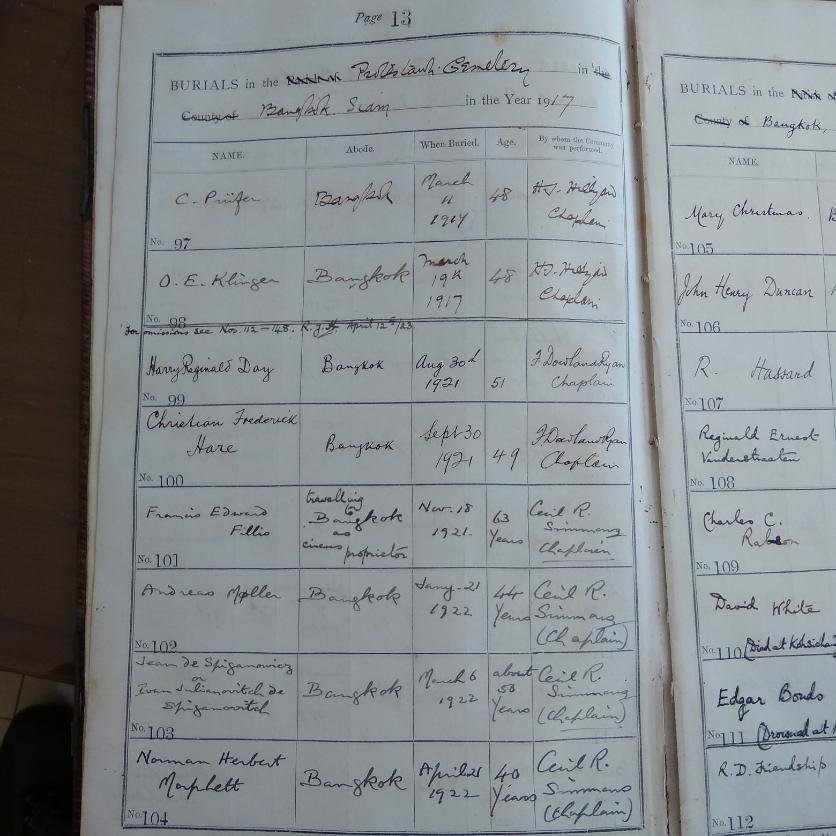 Page 13
BURIALS in the Protestant Cemetery in the
County of Bangkok Siam in the Year 1917
NAME. Abode. When Buried. Age. By whom the Ceremony was performed.
C. Prüfer Bangkok March 11 1917 48 H.J. Hillyard Chaplain
No. 97
O. E. Klinger Bangkok March 19th 1917 48 H.J. Hillyard Chaplain
No. 98
For omissions see Nos. 112-148. R.J.H. April 12th/23
Harry Reginald Day Bangkok Aug 30d 1921 51 F Dowland Ryan Chaplain
No. 99
Christian Frederick Hare Bangkok Sept 30 1921 49 F Dowland Ryan Chaplain
No. 100
Francis Edward Fillis travelling to Bangkok as circus proprietor Nov. 18 1921. 63 Years Cecil R. Simmons Chaplain
No. 101
Andreas Møller Bangkok Jany. 21 1922 44 Years Cecil R. Simmons (Chaplain)
No. 102
Jean de Spiganowicz or Ivan Julianovitch de Spiganovitch Bangkok March 6 1922 about 50 Years Cecil R. Simmons (Chaplain)
No. 103
Norman Herbert Morphett Bangkok April 21 1922 40 Years Cecil R. Simmons (Chaplain)
No. 104
BURIALS in the
County of Bangkok,
NAME.
Mary Christmas.
No. 105
John Henry Duncan
No. 106
R. Hassard
No. 107
Reginald Ernest
Vanderstraaten
No. 108
Charles C.
Rabson
No. 109
David White
No. 110 (Died at
Edgar Bonds
No. 111 (Drowned at
R.D. Friendship
No. 112